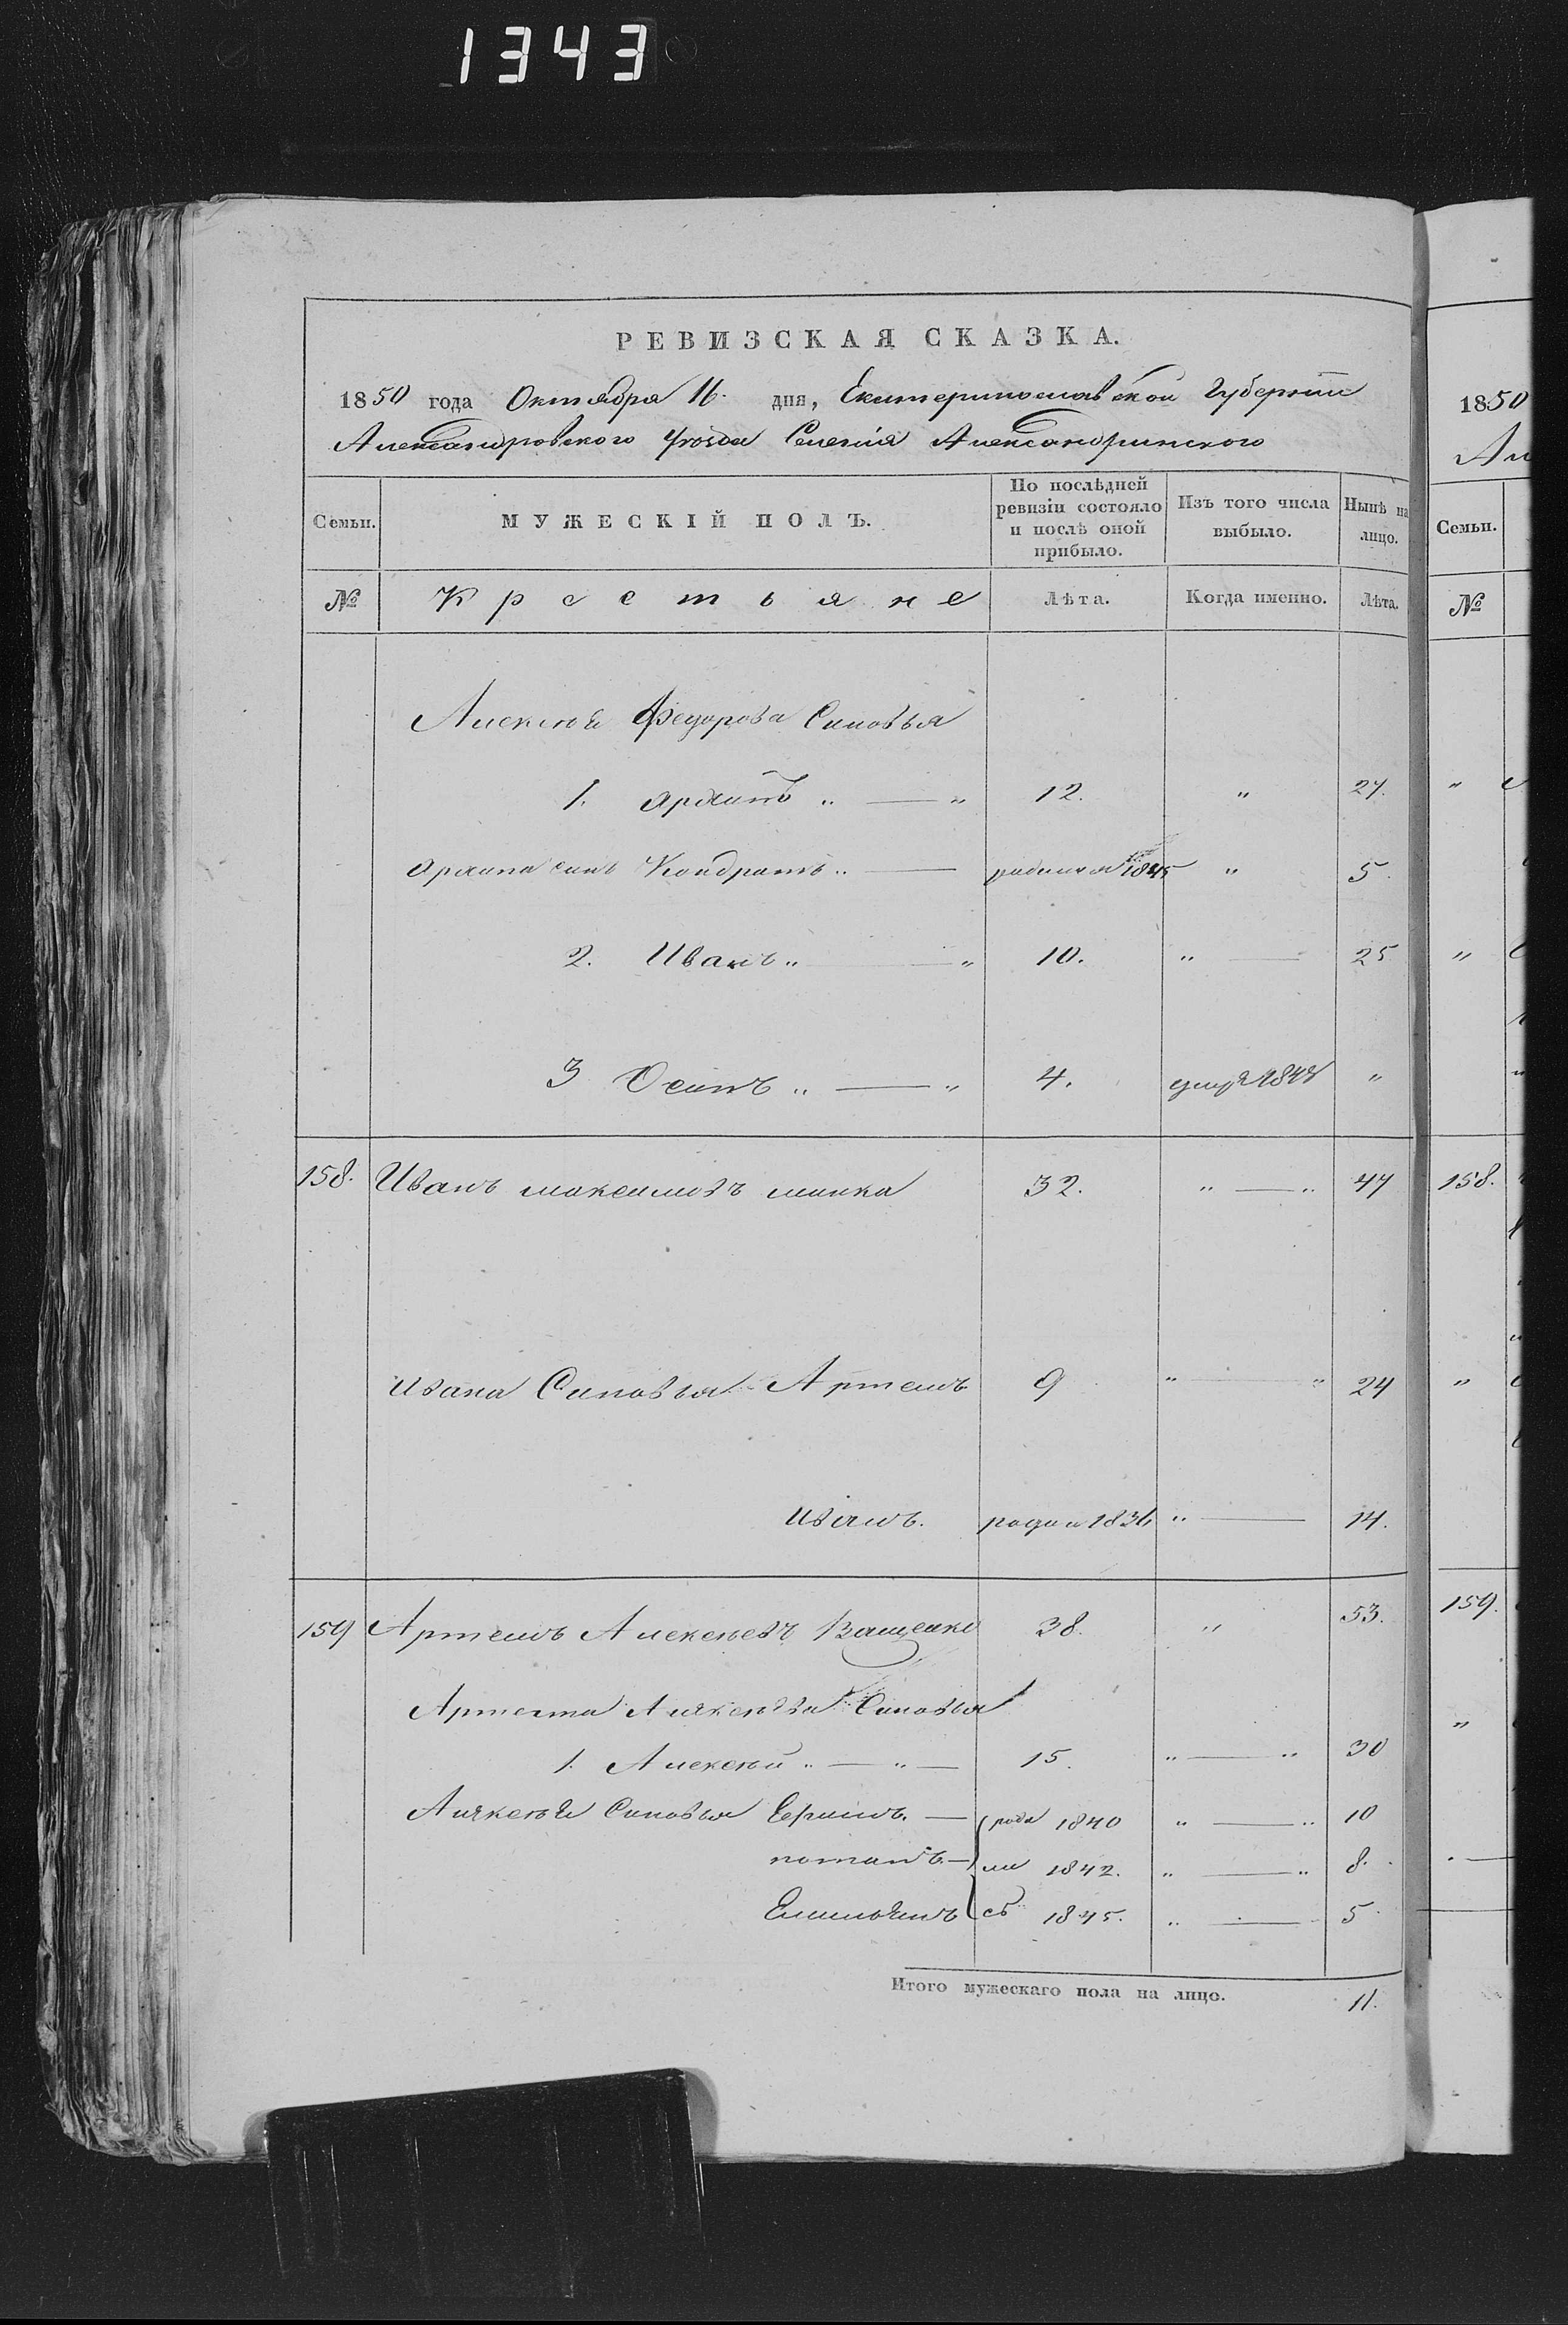 1343
РЕВИЗСКАЯ СКАЗКА.
1850 года Октября 16. дня, Екатеринославской Губернiи
Александровского Уѣзда Селенiя Александринского
Семьи. МУЖЕСКIЙ ПОЛЪ. По послѣдней ревизiи состояло и послѣ оной прибыло. Изъ того числа выбыло. Нынѣ на лицо.
№ Крестьяне Лѣта. Когда именно. Лѣта.
Алексѣя Федорова Синовья
1. Архипъ „ — „ 12. „ 27.
Архипа синъ Кондратъ „ — родился 1845 „ 5.
2. Иванъ „ — „ 10. „ — 25
3 Осипъ „ — „ 4. „
158. Иванъ максимовъ 32. „ — „ 47
Ивана Синовья Артемъ 9 „ — „ 24
Иванъ. родил 1836 „ — 14.
159 Артемъ Алексѣевъ Ващенко 38. „ 53.
Артема Алексѣева Синовья
1. Алексѣй „ — „ — 15. „ — „ 30
Алексѣя Синовья Ефимъ. — роди 1840 „ — „ 10
потапъ — ли 1842. „ — „ 8.
Емельянъ сь 1845. „ — 5
Итого мужескаго пола на лицо. 11.
1850
Ал
Семьи.
№
„
„
158.
„
159.
„